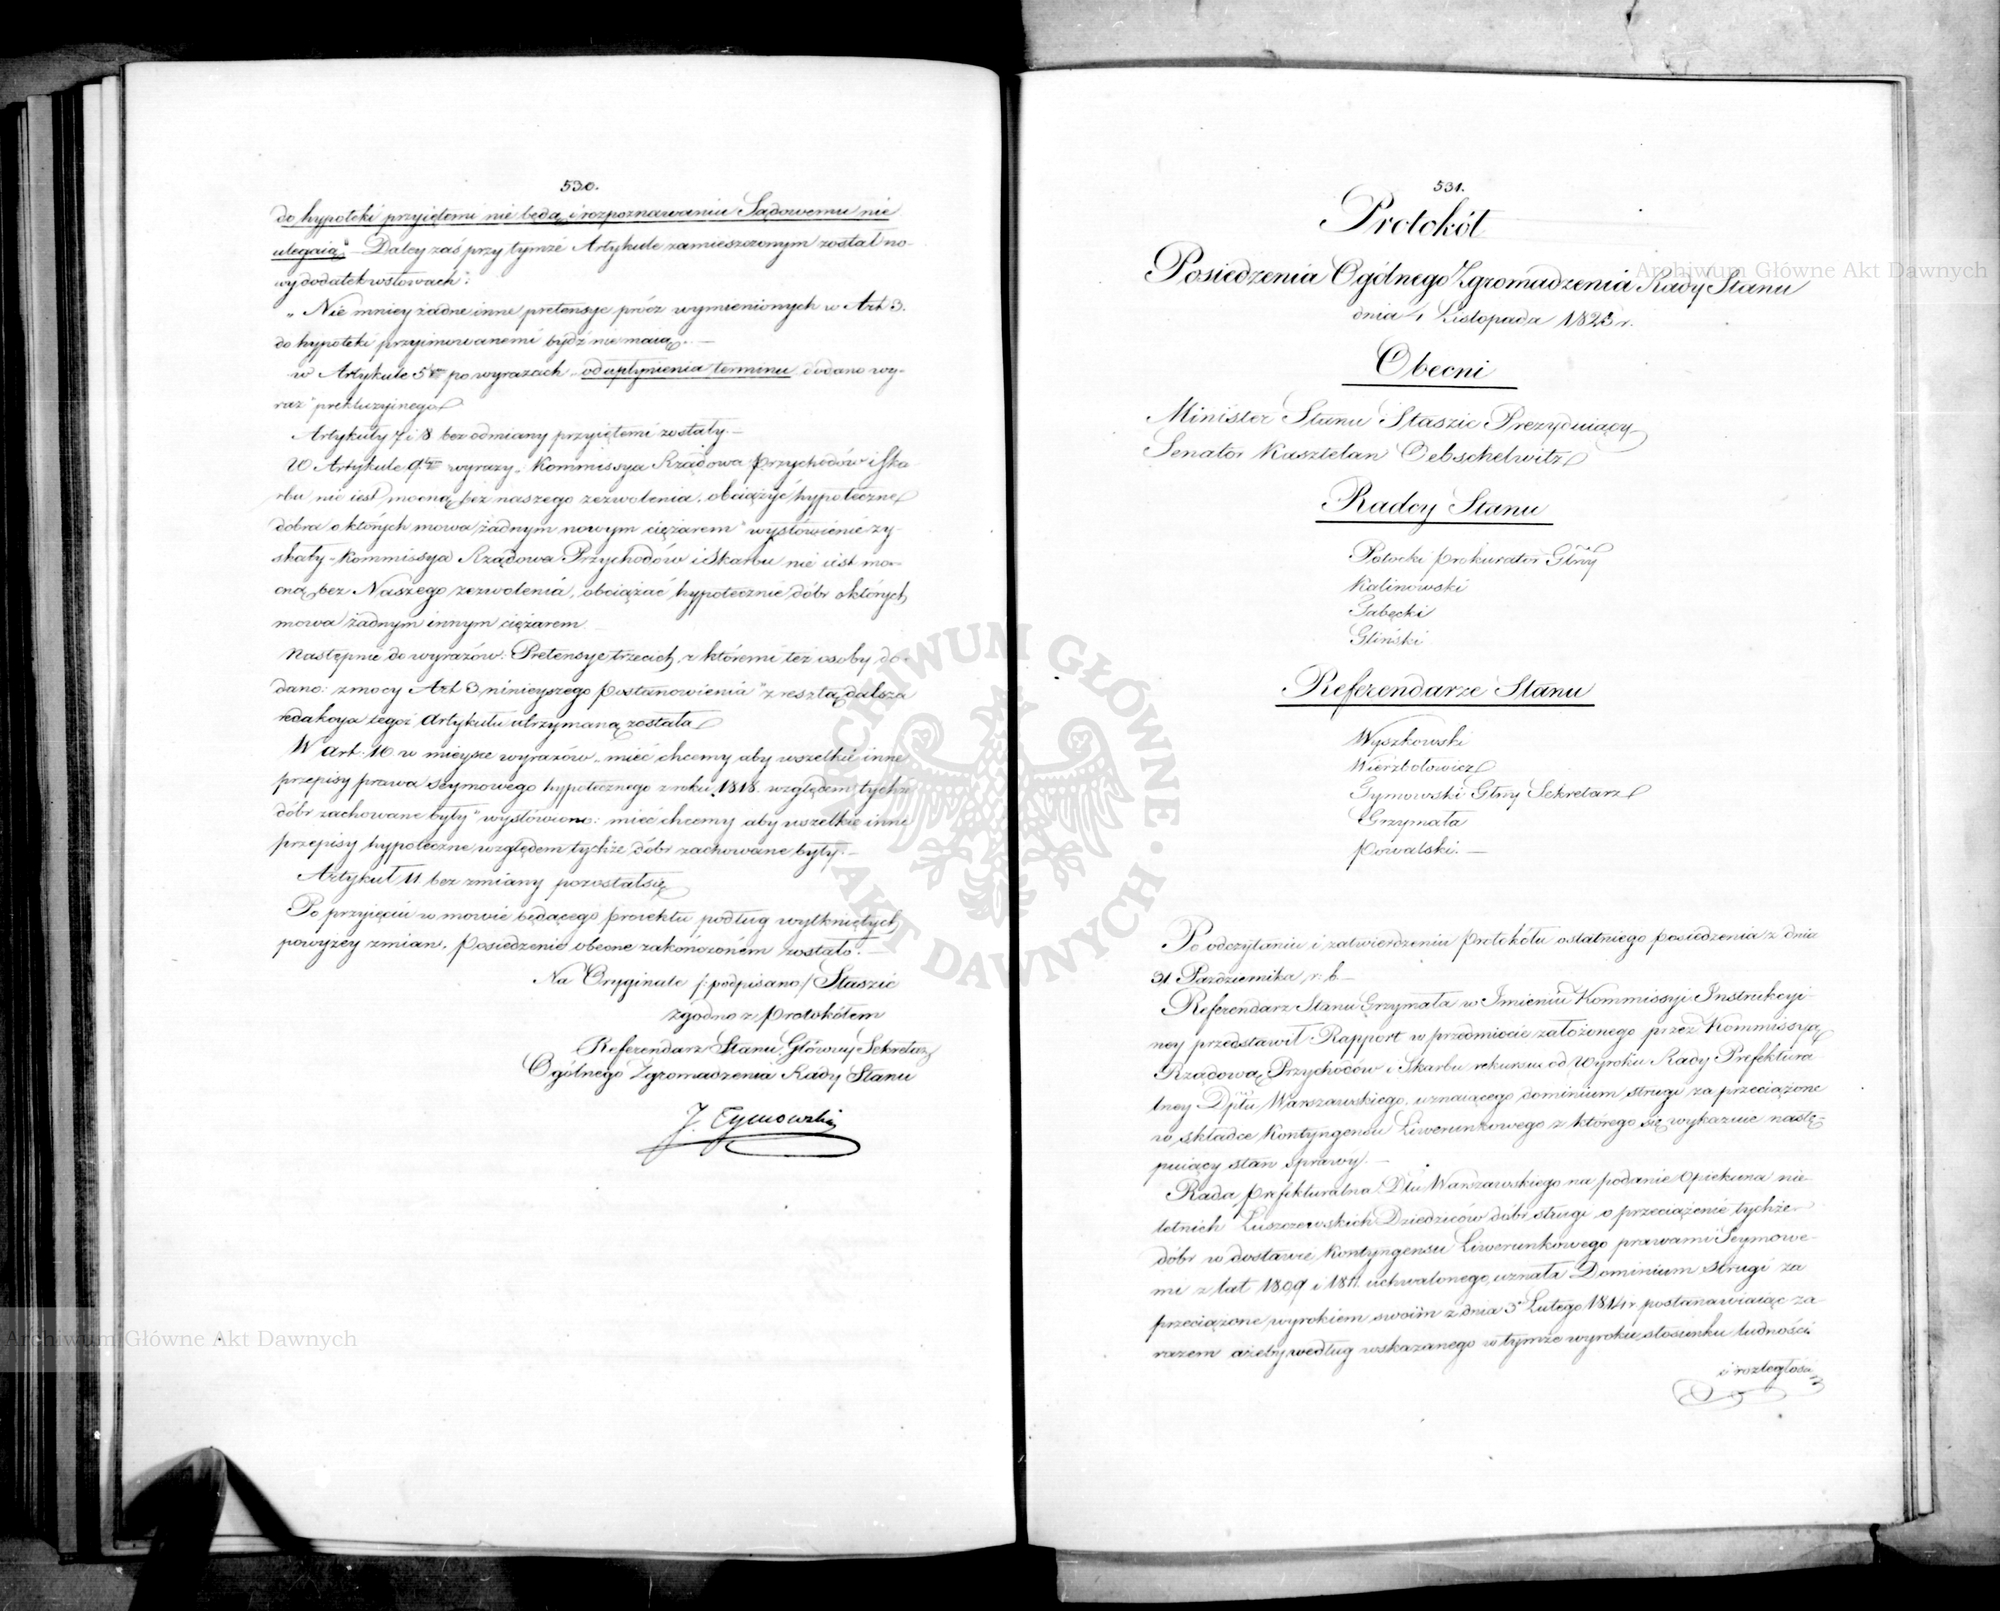 530.
do hypoteki przyiętemi nie będą i rozpoznawaniu Sądowemu nie
ulegaią" – Daley zaś przy tymże Artykule zamieszczonym został no-
wy dodatek w słowach":
„Nie mniey żadne inne pretensye prócz wymienionych w Art 3.
do hypoteki przyjmowanemi bydź nie maią. –
w Artykule 5tm po wyrazach „od upłynienia terminu" dodano wy-
raz "prekluzyinego"
Artykuły 7 i 8 bez odmiany przyiętemi zostały. –
W Artykule 9tm wyrazy „Kommissya Rządowa Przychodów i Ska-
rbu nie iest mocną, bez naszego zezwolenia, obciążyć hypoteczne
dobra o których mowa żadnym nowym ciężarem" wysłowienie zy-
skały – Kommissya Rządowa Przychodów i Skarbu nie iest mo-
cną, bez Naszego zezwolenia, obciążać hypotecznie dóbr o których
mowa żadnym innym ciężarem. –
Następnie do wyrazów: Pretensye trzecich, z któremi też osoby do-
dano: z mocy Art 3 ninieyszego postanowienia" z resztą dalsza
redakcya tegoż Artykułu utrzymaną została
W Art. 10 w mieysce wyrazów „mieć chcemy aby wszelkie inne
przepisy prawa Seymowego hypotecznego z roku 1818. względem tychże
dóbr zachowane były" wysłowiono: mieć chcemy aby wszelkie inne
przepisy hypoteczne względem tychże dóbr zachowane były. –
Artykuł 11 bez zmiany pozostał się
Po przyięciu w mowie będącego proiektu podług wytkniętych
powyżey zmian, Posiedzenie obecne zakończoném zostało. –
Na Oryginale /:podpisano/ Staszic
Zgodno z Protokółem
Referendarz Stanu, Główny Sekretarz
Ogólnego Zgromadzenia Rady Stanu
J. Tymowski
531.
Protokół
Posiedzenia Ogólnego Zgromadzenia Rady Stanu
dnia 4 Listopada 1823 r.
Obecni
Minister Stanu Staszic Prezyduiący
Senator Kasztelan Oebschelwitz
Radcy Stanu
Potocki Prokurator Glny
Kalinowski
Gabęcki
Gliński
Referendarze Stanu
Wyszkowski
Wierzbołowicz
Tymowski Glny Sekretarz
Grzymała
Powalski. –
Po odczytaniu i zatwierdzeniu Protokółu ostatniego posiedzenia z dnia
31 Października r: b. –
Referendarz Stanu Grzymała w Imieniu Kommissyi Instrukcyi-
ney przedstawił Rapport w przedmiocie założonego przez Kommissyą
Rządową Przychodów i Skarbu rekursu od Wyroku Rady Prefektural-
lney Dptu Warszawskiego, uznaiącego dominium strugi za przeciążone
w składce Kontyngensu Liwerunkowego z którego się wykazuie nastę-
puiący stan sprawy. –
Rada Prefekturalna Dtu Warszawskiego na podanie Opiekuna nie-
letnich Łuszczewskich Dziedziców dóbr strugi o przeciążenie tychże
dóbr w dostawie Kontyngensu Liwerunkowego prawami Seymowe-
mi z lat 1809 i 1811. uchwalonego, uznała Dominium Strugi za
przeciążone wyrokiem swoiim z dnia 3 Lutego 1814 r postanawiaiąc za-
razem ażeby według wskazanego w tymże wyroku stosunku ludności
i rozległości
Archiwum Główne Akt Dawnych
Archiwum Główne Akt Dawnych
ARCHIWUM GŁÓWNE
AKT DAWNYCH